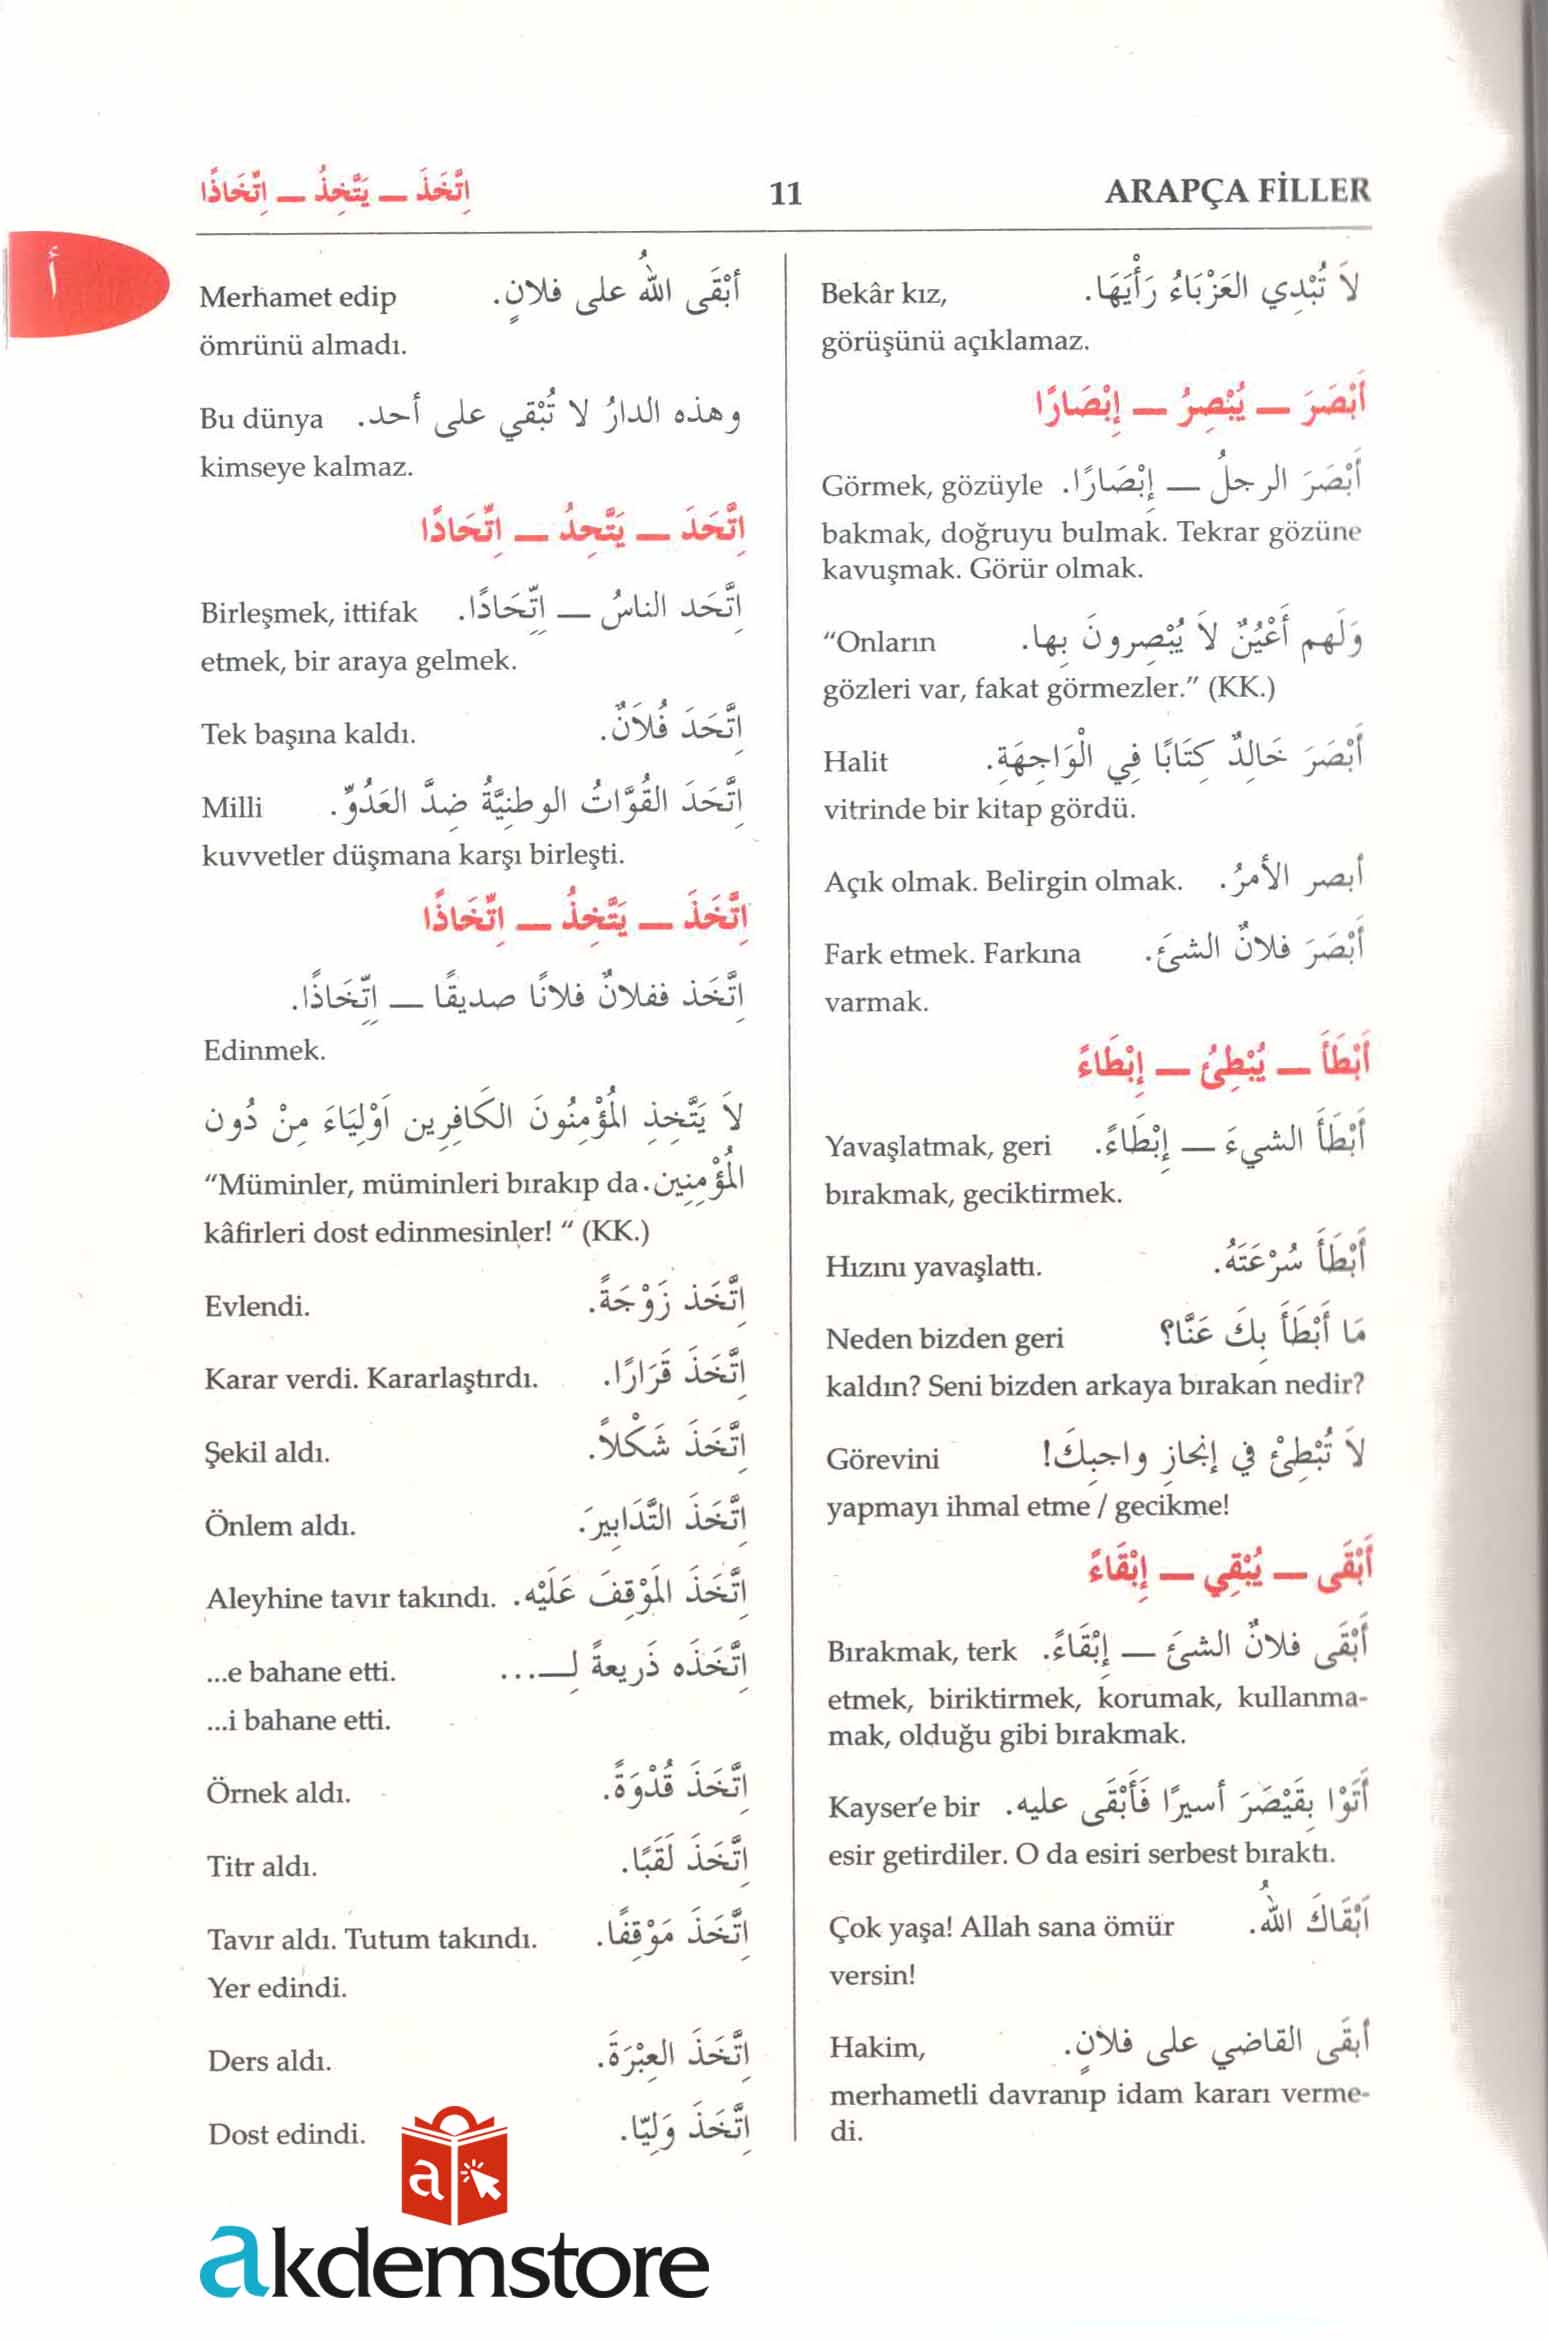 ARAPÇA FİLLER 11 اِتَّخَذَ ــ يَتَّخِذُ ــ اِتِّخَاذًا
أ
Bekâr kız, لاَ تُبْدِي العَزْبَاءُ رَأْيَهَا.
görüşünü açıklamaz.
أَبْصَرَ ــ يُبْصِرُ ــ إِبْصَارًا
Görmek, gözüyle أَبْصَرَ الرجلُ ــ إِبْصَارًا.
bakmak, doğruyu bulmak. Tekrar gözüne
kavuşmak. Görür olmak.
“Onların وَلَهم أَعْيُنٌ لاَ يُبْصِرونَ بِها.
gözleri var, fakat görmezler.” (KK.)
Halit أَبْصَرَ خَالِدٌ كِتَابًا فِي الْوَاجِهَةِ.
vitrinde bir kitap gördü.
Açık olmak. Belirgin olmak. أبصر الأمرُ.
Fark etmek. Farkına أَبْصَرَ فلانٌ الشئَ.
varmak.
أَبْطَأَ ــ يُبْطِئُ ــ إِبْطَاءً
Yavaşlatmak, geri أَبْطَأَ الشيءَ ــ إِبْطَاءً.
bırakmak, geciktirmek.
Hızını yavaşlattı. أَبْطَأَ سُرْعَتَهُ.
Neden bizden geri مَا أَبْطَأَ بِكَ عَنَّا؟
kaldın? Seni bizden arkaya bırakan nedir?
Görevini لاَ تُبْطِئْ في إنجازِ واجبِكَ!
yapmayı ihmal etme / gecikme!
أَبْقَى ــ يُبْقِي ــ إِبْقَاءً
Bırakmak, terk أَبْقَى فلانٌ الشئَ ــ إِبْقَاءً.
etmek, biriktirmek, korumak, kullanma-
mak, olduğu gibi bırakmak.
Kayser’e bir أَتَوْا بِقَيْصَرَ أسيرًا فَأَبْقَى عليه.
esir getirdiler. O da esiri serbest bıraktı.
Çok yaşa! Allah sana ömür أَبْقَاكَ اللهُ.
versin!
Hakim, أبقَى القاضي على فلانٍ.
merhametli davranıp idam kararı verme-
di.
Merhamet edip أَبْقَى اللهُ على فلانٍ.
ömrünü almadı.
Bu dünya وهذه الدارُ لا تُبْقي على أحد.
kimseye kalmaz.
اِتَّحَدَ ــ يَتَّحِدُ ــ اِتِّحَادًا
Birleşmek, ittifak اِتَّحَد الناسُ ــ اِتِّحَادًا.
etmek, bir araya gelmek.
Tek başına kaldı. اِتَّحَدَ فُلاَنٌ.
Milli اِتَّحَدَ القُوَّاتُ الوطنِيَّةُ ضِدَّ العَدُوِّ.
kuvvetler düşmana karşı birleşti.
اِتَّخَذَ ــ يَتَّخِذُ ــ اِتِّخَاذًا
اِتَّخَذ ففلانٌ فلانًا صديقًا ــ اِتِّخَاذًا.
Edinmek.
لاَ يَتَّخِذِ المُؤْمِنُونَ الكَافِرِين أَوْلِيَاءَ مِنْ دُون
“Müminler, müminleri bırakıp da المُؤْمِنِين.
kâfirleri dost edinmesinler! “ (KK.)
Evlendi. اِتَّخَذ زَوْجَةً.
Karar verdi. Kararlaştırdı. اِتَّخَذَ قَرَارًا.
Şekil aldı. اِتَّخَذَ شَكْلاً.
Önlem aldı. اِتَّخَذَ التَّدَابِيرَ.
Aleyhine tavır takındı. اِتَّخَذَ المَوْقِفَ عَلَيْه.
...e bahane etti. اِتَّخَذَه ذَريعةً لِـــ...
...i bahane etti.
Örnek aldı. اِتَّخَذَ قُدْوَةً.
Titr aldı. اِتَّخَذَ لَقَبًا.
Tavır aldı. Tutum takındı. اِتَّخَذَ مَوْقِفًا.
Yer edindi.
Ders aldı. اِتَّخَذَ العِبْرَةَ.
Dost edindi. اِتَّخَذَ وَلِيّا.
a
akdemstore